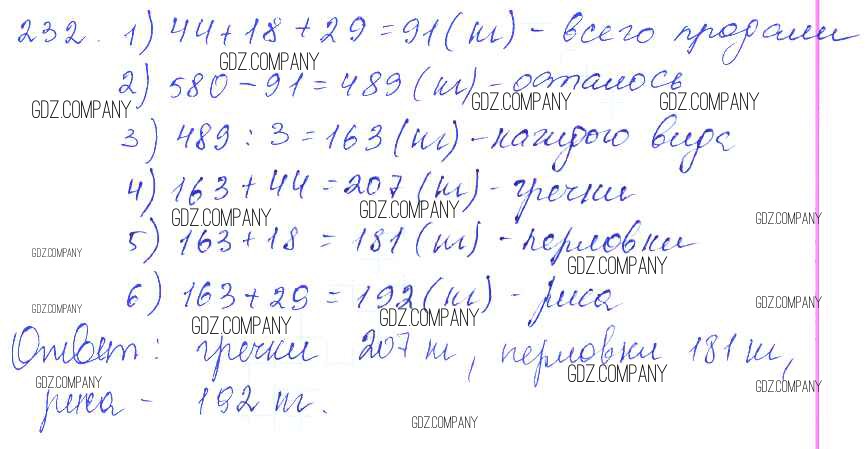 232. 1) 44+18+29=91(кг) - всего продали
GDZ.COMPANY
2) 580-91=489(кг) - осталось
GDZ.COMPANY GDZ.COMPANY GDZ.COMPANY
3) 489:3=163(кг) - каждого вида
4) 163+44=207(кг) - гречки
GDZ.COMPANY GDZ.COMPANY GDZ.COMPANY
5) 163+18=181(кг) - перловки
GDZ.COMPANY GDZ.COMPANY
6) 163+29=192(кг) - риса
GDZ.COMPANY GDZ.COMPANY
GDZ.COMPANY GDZ.COMPANY
Ответ: гречки 207 кг, перловки 181 кг,
GDZ.COMPANY GDZ.COMPANY GDZ.COMPANY
риса - 192 кг.
GDZ.COMPANY